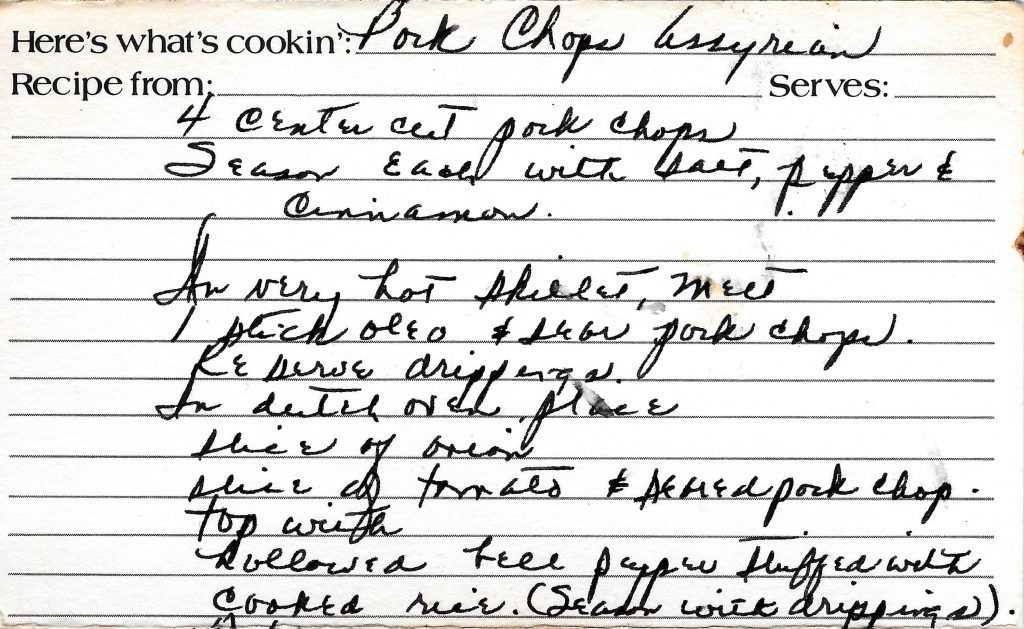 Here's what's cookin': Pork Chops Assyrian
Recipe from: Serves:
4 center cut pork chops
Season each with salt, pepper &
Cinnamon.
In very hot skillet, melt
1 stick oleo & sear pork chops.
Reserve drippings.
In dutch oven place
slice of onion
slice of tomato & seared pork chop.
Top with
hollowed bell pepper stuffed with
cooked rice. (Season with drippings).